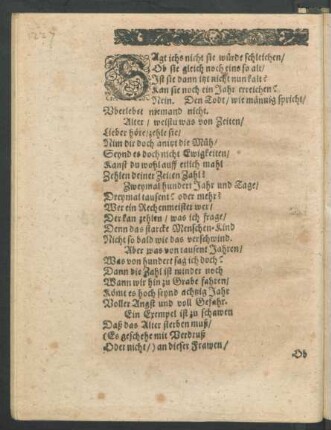 SAgt ichs nicht sie würde schleichen/
Ob sie gleich noch eins so alt/
Ist sie dann itzt nicht nun kalt?
Kan sie noch ein Jahr erreichen?
Nein. Den Todt/ wie männig spricht/
Vberlebet niemand nicht.
Alter/ weistu was von Zeiten/
Lieber höre/ zehle sie/
Nim dir doch anitzt die Müh/
Seynd es doch nicht Ewigkeiten/
Kanst du wohl auff etlich mahl
Zehlen deiner Zeiten Zahl?
Zweymal hundert Jahr und Tage/
Dreymal tausent? oder mehr?
Wer ein Rechenmeister wer/
Der kan zehlen/ was ich frage/
Denn das starcke Menschen-Kind
Nicht so bald wie das verschwind.
Aber was von tausent Jahren/
Was von hundert sag ich doch?
Dann die Zahl ist minder noch
Wann wir hin zu Grabe fahren/
Kömt es hoch seynd achzig Jahr
Voller Angst und voll Gefahr.
Ein Exempel ist zu schawen
Daß das Alter sterben muß/
(Es geschehe mit Verdruß
Oder nicht/) an dieser Frawen/
Ob